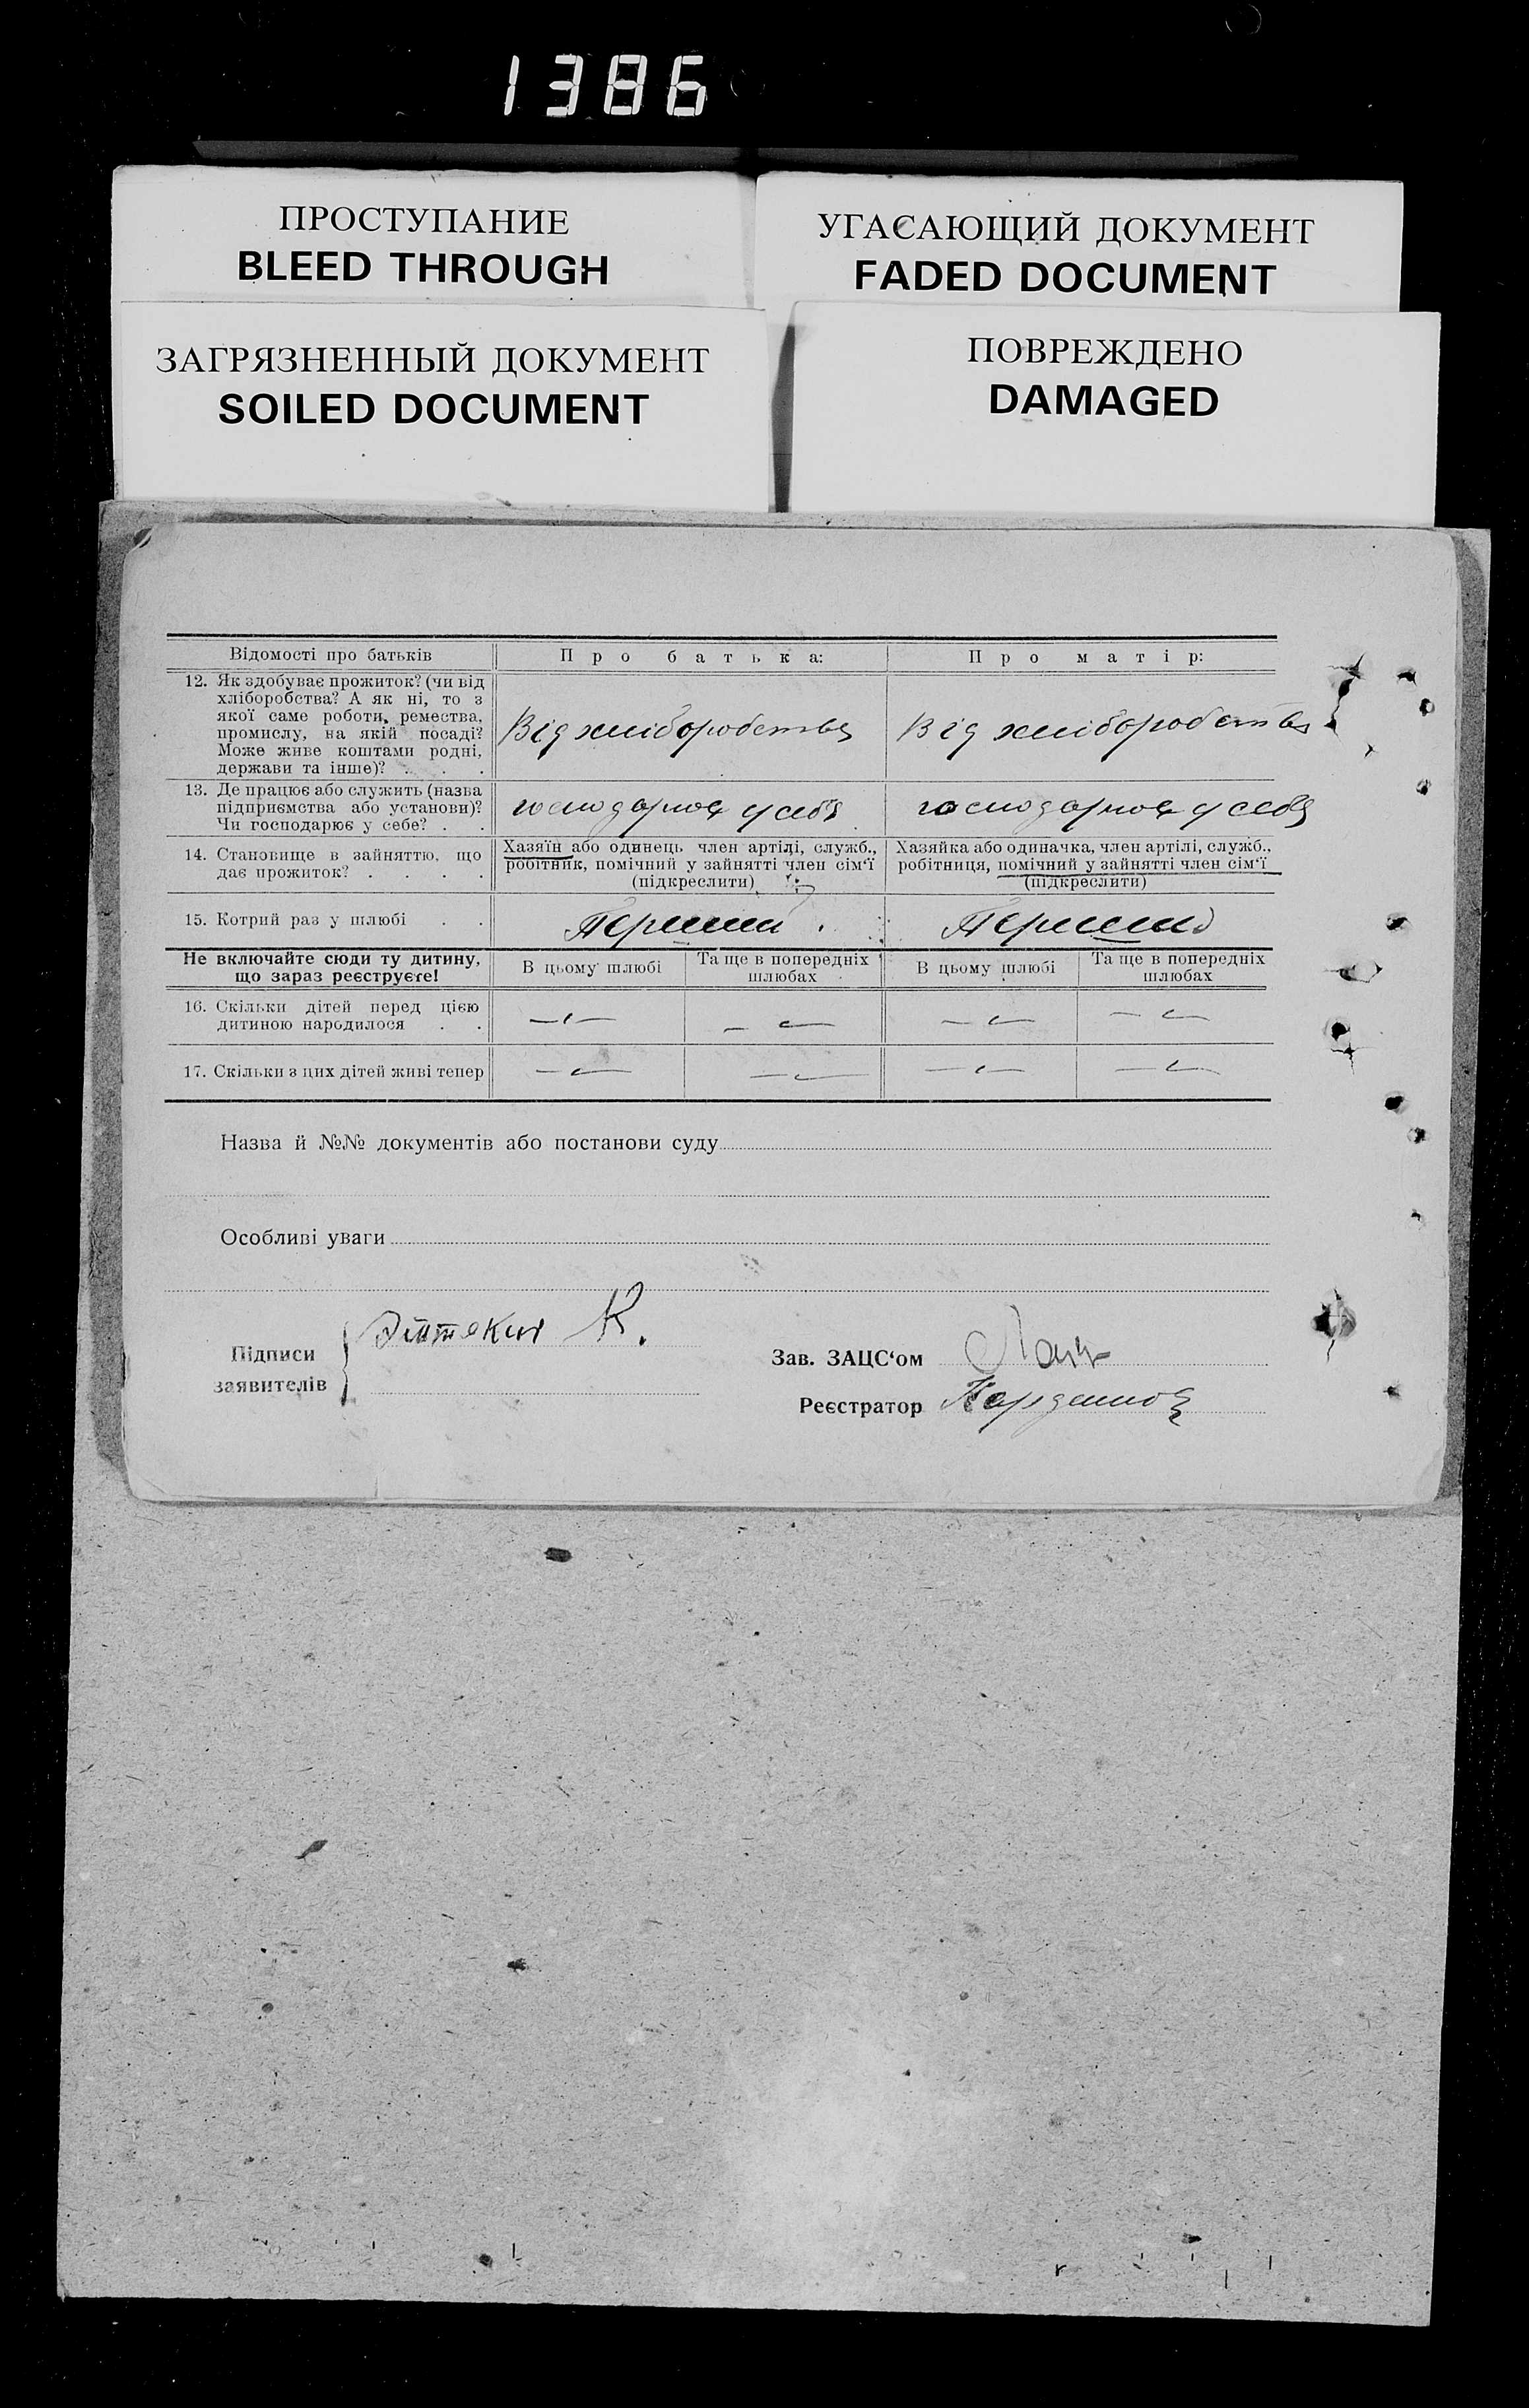 1386
ПРОСТУПАНИЕ
BLEED THROUGH
УГАСАЮЩИЙ ДОКУМЕНТ
FADED DOCUMENT
ЗАГРЯЗНЕННЫЙ ДОКУМЕНТ
SOILED DOCUMENT
ПОВРЕЖДЕНО
DAMAGED
Відомості про батьків
Про батька:
Про матір:
12. Як здобуває прожиток? (чи від
хліборобства? А як ні, то з
якої саме роботи, ремества,
промислу, на якій посаді?
Може живе коштами родні,
держави та інше)? . . .
Від хліборобства
Від хліборобства
13. Де працює або служить (назва
підприємства або установи)?
Чи господарює у себе? . .
господарює у себе
господарює у себе
14. Становище в зайняттю, що
дає прожиток? . . . .
Хазяїн або одинець член артілі, служб.,
робітник, помічний у зайнятті член сім'ї
(підкреслити)
Хазяйка або одиначка, член артілі, служб.,
робітниця, помічний у зайнятті член сім'ї
(підкреслити)
15. Котрий раз у шлюбі . .
Перший
Перший
Не включайте сюди ту дитину,
що зараз реєструєте!
В цьому шлюбі
Та ще в попередніх
шлюбах
В цьому шлюбі
Та ще в попередніх
шлюбах
16. Скільки дітей перед цією
дитиною народилося . .
17. Скільки з цих дітей живі тепер
Назва й №№ документів або постанови суду
Особливі уваги
Підписи
заявителів
К.
Зав. ЗАЦС'ом
Реєстратор